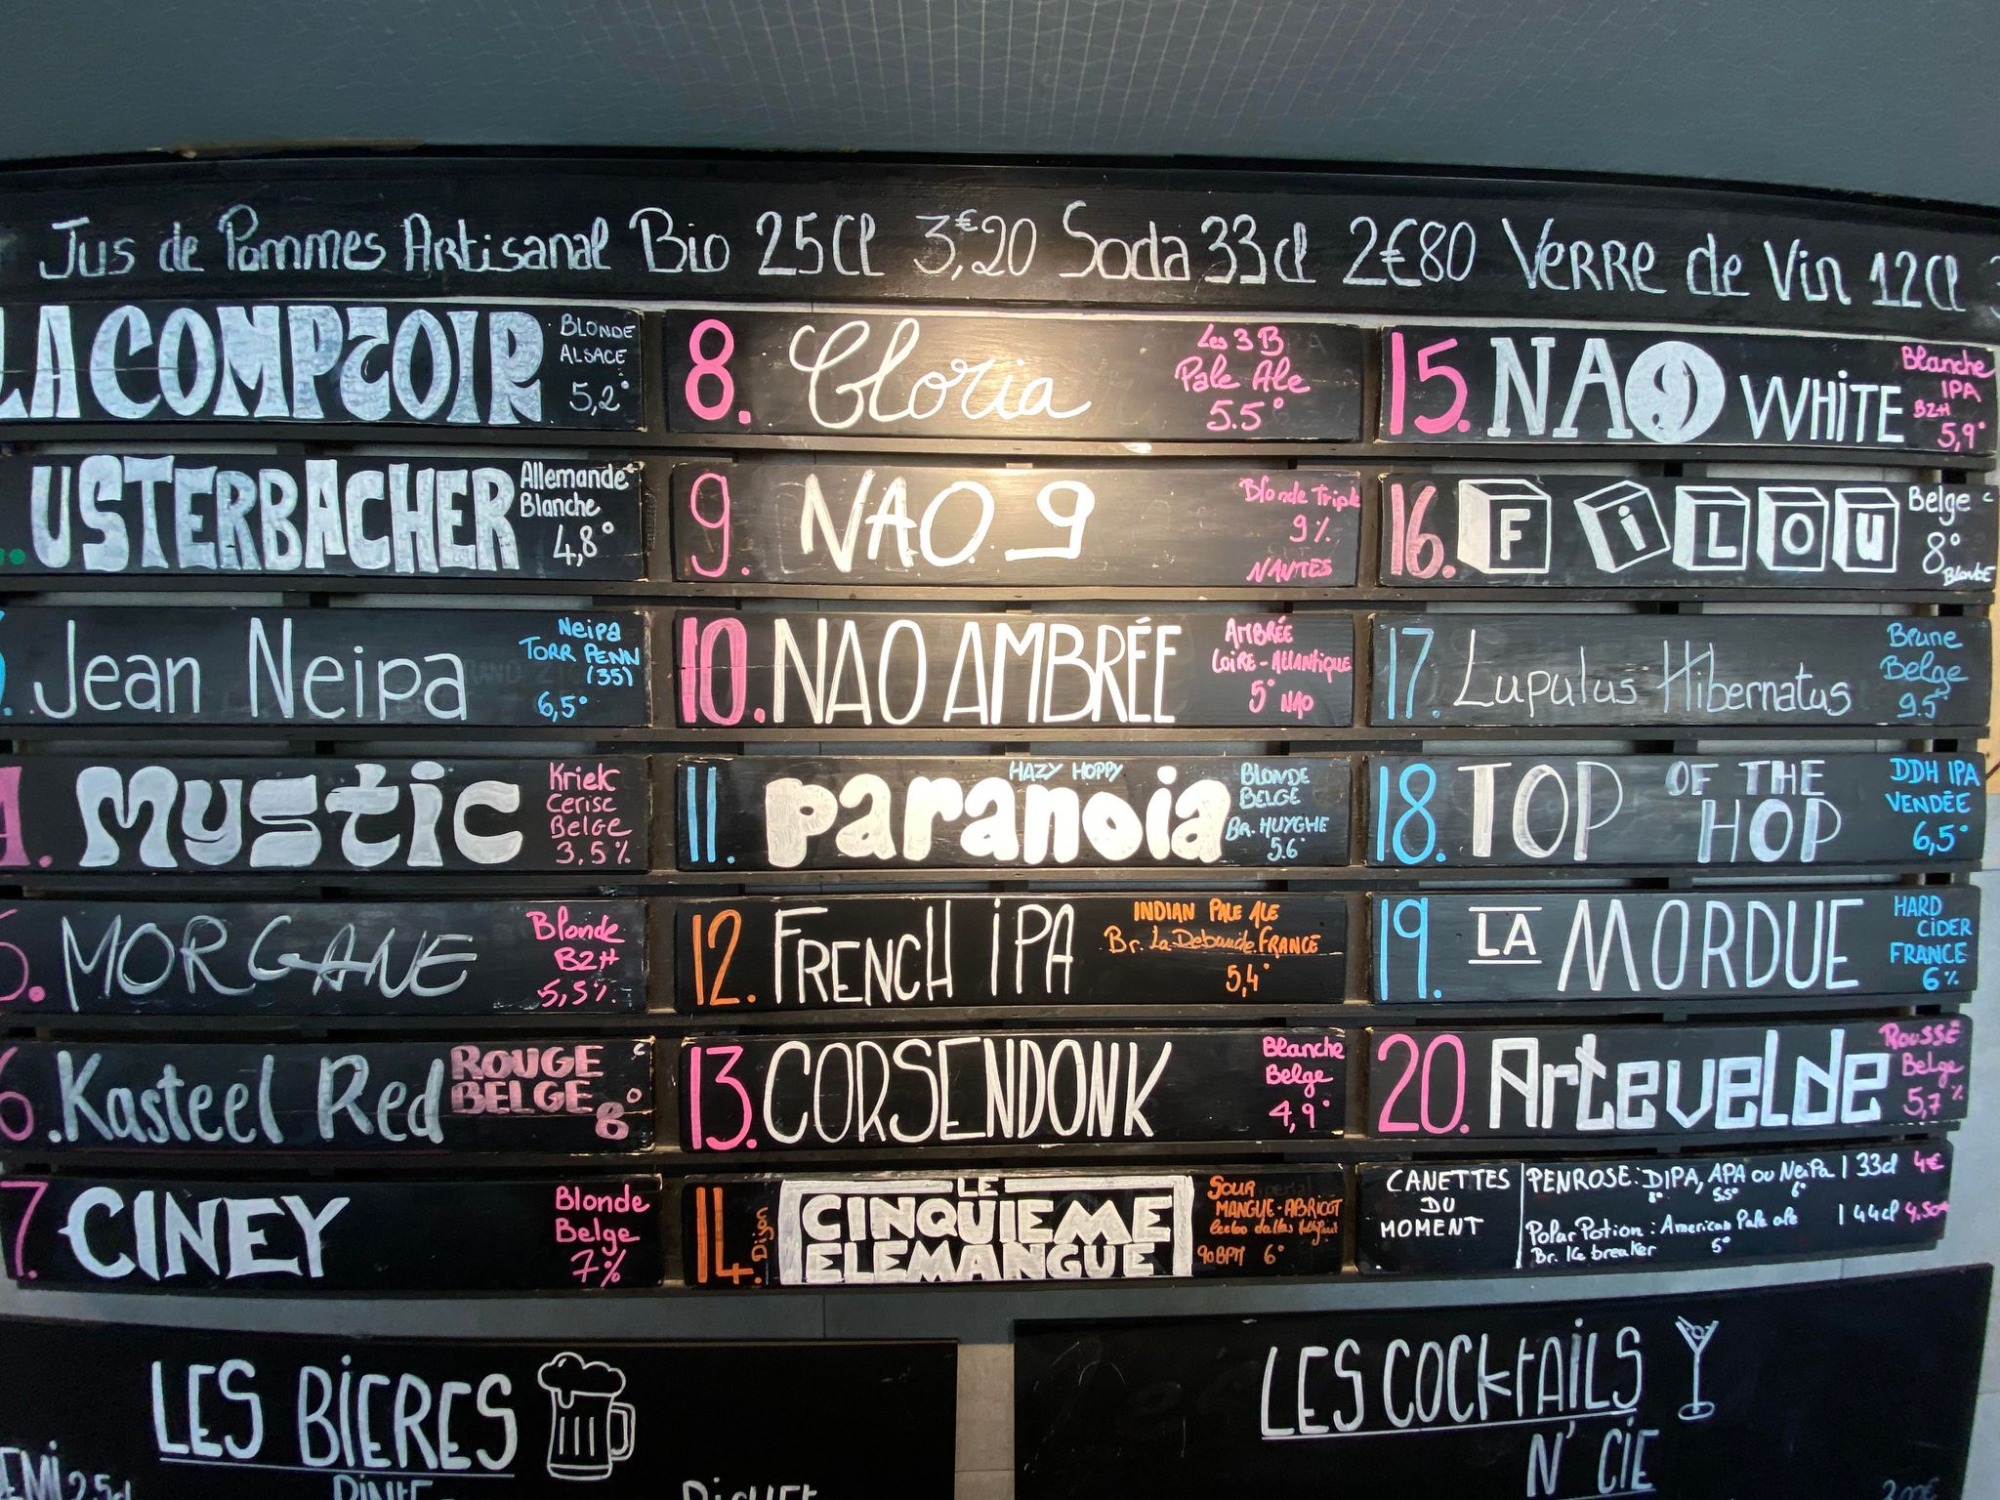 Jus de Pommes Artisanal Bio 25Cl 3,€20 Soda 33cl 2€80 Verre de Vin 12Cl
LA COMPTOIR
BLONDE
ALSACE
5,2°
USTERBACHER
Allemande
Blanche
4,8°
Jean Neipa
Neipa
TORR PENN
(35)
6,5°
Mystic
Kriek
Cerise
Belge
3,5%
5. MORGANE
Blonde
B2H
5,5%
6. Kasteel Red
ROUGE
BELGE
8°
7. CINEY
Blonde
Belge
7%
8. Gloria
Les 3 B
Pale Ale
5.5°
9. NAO 9
Blonde Triple
9%
NANTES
10. NAO AMBRÉE
AMBRÉE
LOIRE-ATLANTIQUE
5° NAO
11. paranoia
HAZY HOPPY
BLONDE
BELGE
BR. HUYGHE
5.6°
12. FRENCH IPA
INDIAN PALE ALE
Br. La Debauche FRANCE
5,4°
13. CORSENDONK
Blanche
Belge
4,9°
14. Dijon
LE
CINQUIEME
ELEMANGUE
SOUR
MANGUE-ABRICOT
90BPM 6°
15. NAO WHITE
Blanche
IPA
B2H
5,9°
16. FiLOU
Belge
8°
Blonde
17. Lupulus Hibernatus
Brune
Belge
9.5°
18. TOP OF THE HOP
DDH IPA
VENDÉE
6,5°
19. LA MORDUE
HARD
CIDER
FRANCE
6%
20. Artevelde
ROUSSE
Belge
5,7%
CANETTES
DU
MOMENT
PENROSE: DIPA, APA ou NeiPa | 33cl 4€
8° 5.5° 6°
Polar Potion: American Pale ale | 44cl 4,50€
Br. Ice breaker 5°
LES BIERES
LES COCKTAILS
N' CIE